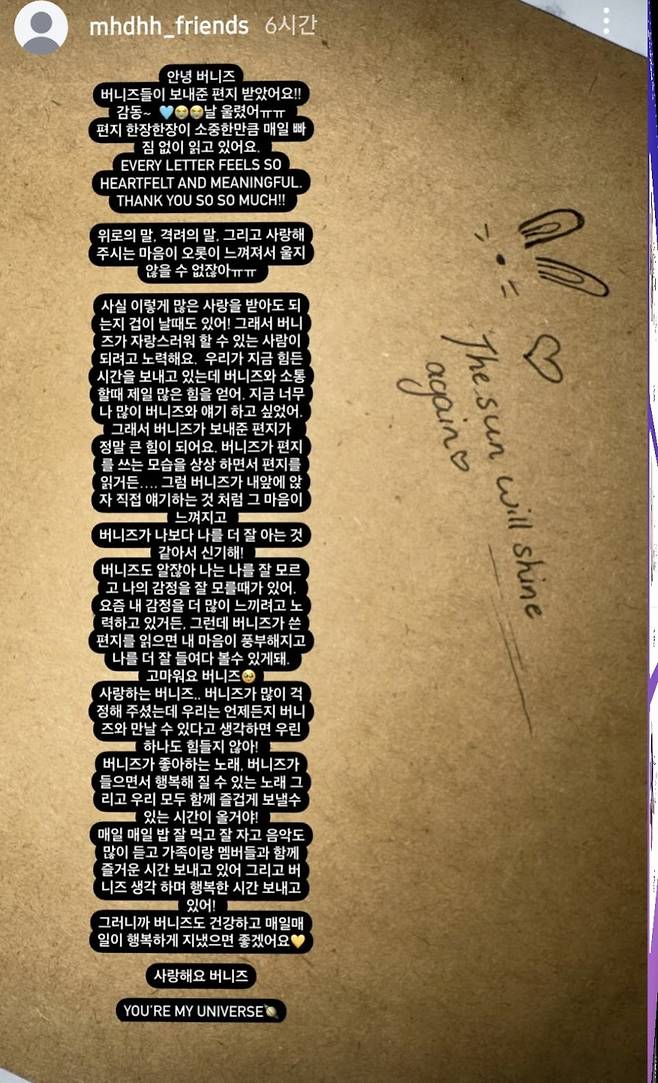 mhdhh_friends 6시간
안녕 버니즈
버니즈들이 보내준 편지 받았어요!!
감동~ 🩵😭😭날 울렸어ㅠㅠ
편지 한장한장이 소중한만큼 매일 빠
짐 없이 읽고 있어요.
EVERY LETTER FEELS SO
HEARTFELT AND MEANINGFUL.
THANK YOU SO SO MUCH!!
위로의 말, 격려의 말, 그리고 사랑해
주시는 마음이 오롯이 느껴져서 울지
않을 수 없잖아ㅠㅠ
사실 이렇게 많은 사랑을 받아도 되
는지 겁이 날때도 있어! 그래서 버니
즈가 자랑스러워 할 수 있는 사람이
되려고 노력해요. 우리가 지금 힘든
시간을 보내고 있는데 버니즈와 소통
할때 제일 많은 힘을 얻어. 지금 너무
나 많이 버니즈와 얘기 하고 싶었어.
그래서 버니즈가 보내준 편지가
정말 큰 힘이 되어요. 버니즈가 편지
를 쓰는 모습을 상상 하면서 편지를
읽거든.... 그럼 버니즈가 내앞에 앉
자 직접 얘기하는 것 처럼 그 마음이
느껴지고
버니즈가 나보다 나를 더 잘 아는 것
같아서 신기해!
버니즈도 알잖아 나는 나를 잘 모르
고 나의 감정을 잘 모를때가 있어.
요즘 내 감정을 더 많이 느끼려고 노
력하고 있거든. 그런데 버니즈가 쓴
편지를 읽으면 내 마음이 풍부해지고
나를 더 잘 들여다 볼수 있게돼.
고마워요 버니즈🥹
사랑하는 버니즈.. 버니즈가 많이 걱
정해 주셨는데 우리는 언제든지 버니
즈와 만날 수 있다고 생각하면 우린
하나도 힘들지 않아!
버니즈가 좋아하는 노래, 버니즈가
들으면서 행복해 질 수 있는 노래 그
리고 우리 모두 함께 즐겁게 보낼수
있는 시간이 올거야!
매일 매일 밥 잘 먹고 잘 자고 음악도
많이 듣고 가족이랑 멤버들과 함께
즐거운 시간 보내고 있어 그리고 버
니즈 생각 하며 행복한 시간 보내고
있어!
그러니까 버니즈도 건강하고 매일매
일이 행복하게 지냈으면 좋겠어요💛
사랑해요 버니즈
YOU'RE MY UNIVERSE🪐
The sun will shine
again♡